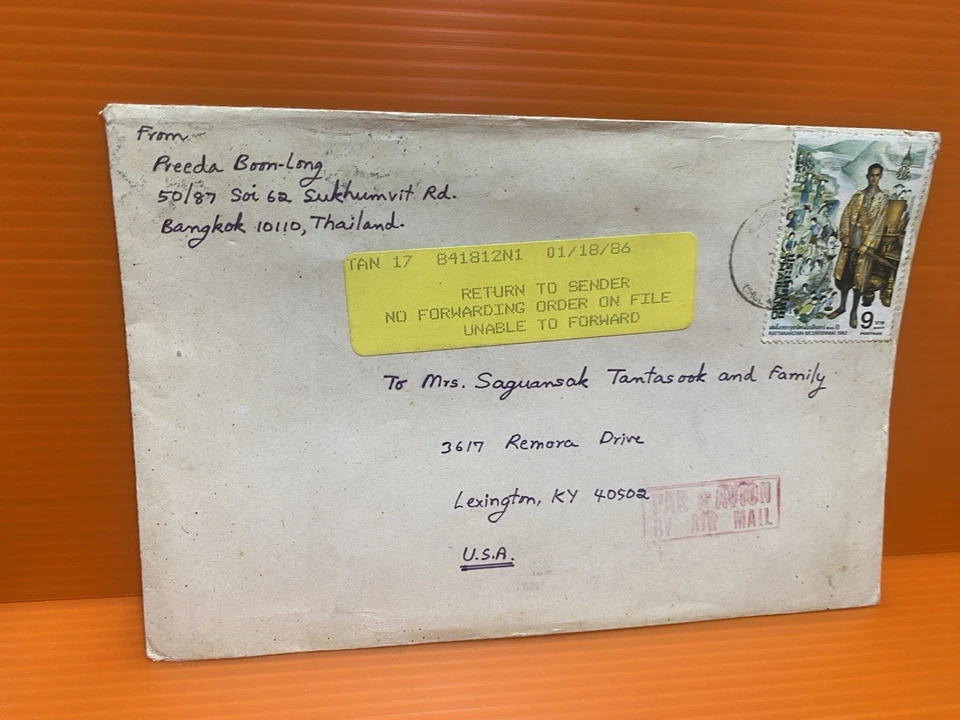 From
Preeda Boon-Long
50/87 Soi 62 Sukhumvit Rd.
Bangkok 10110, Thailand.
TAN 17 841812N1 01/18/86
RETURN TO SENDER
NO FORWARDING ORDER ON FILE
UNABLE TO FORWARD
9 บาท
RATTANAKOSIN BICENTENNIAL 1982
POSTAGE
To Mrs. Saguansak Tantasook and Family
3617 Remora Drive
Lexington, KY 40502
U.S.A.
PAR AVION
BY AIR MAIL